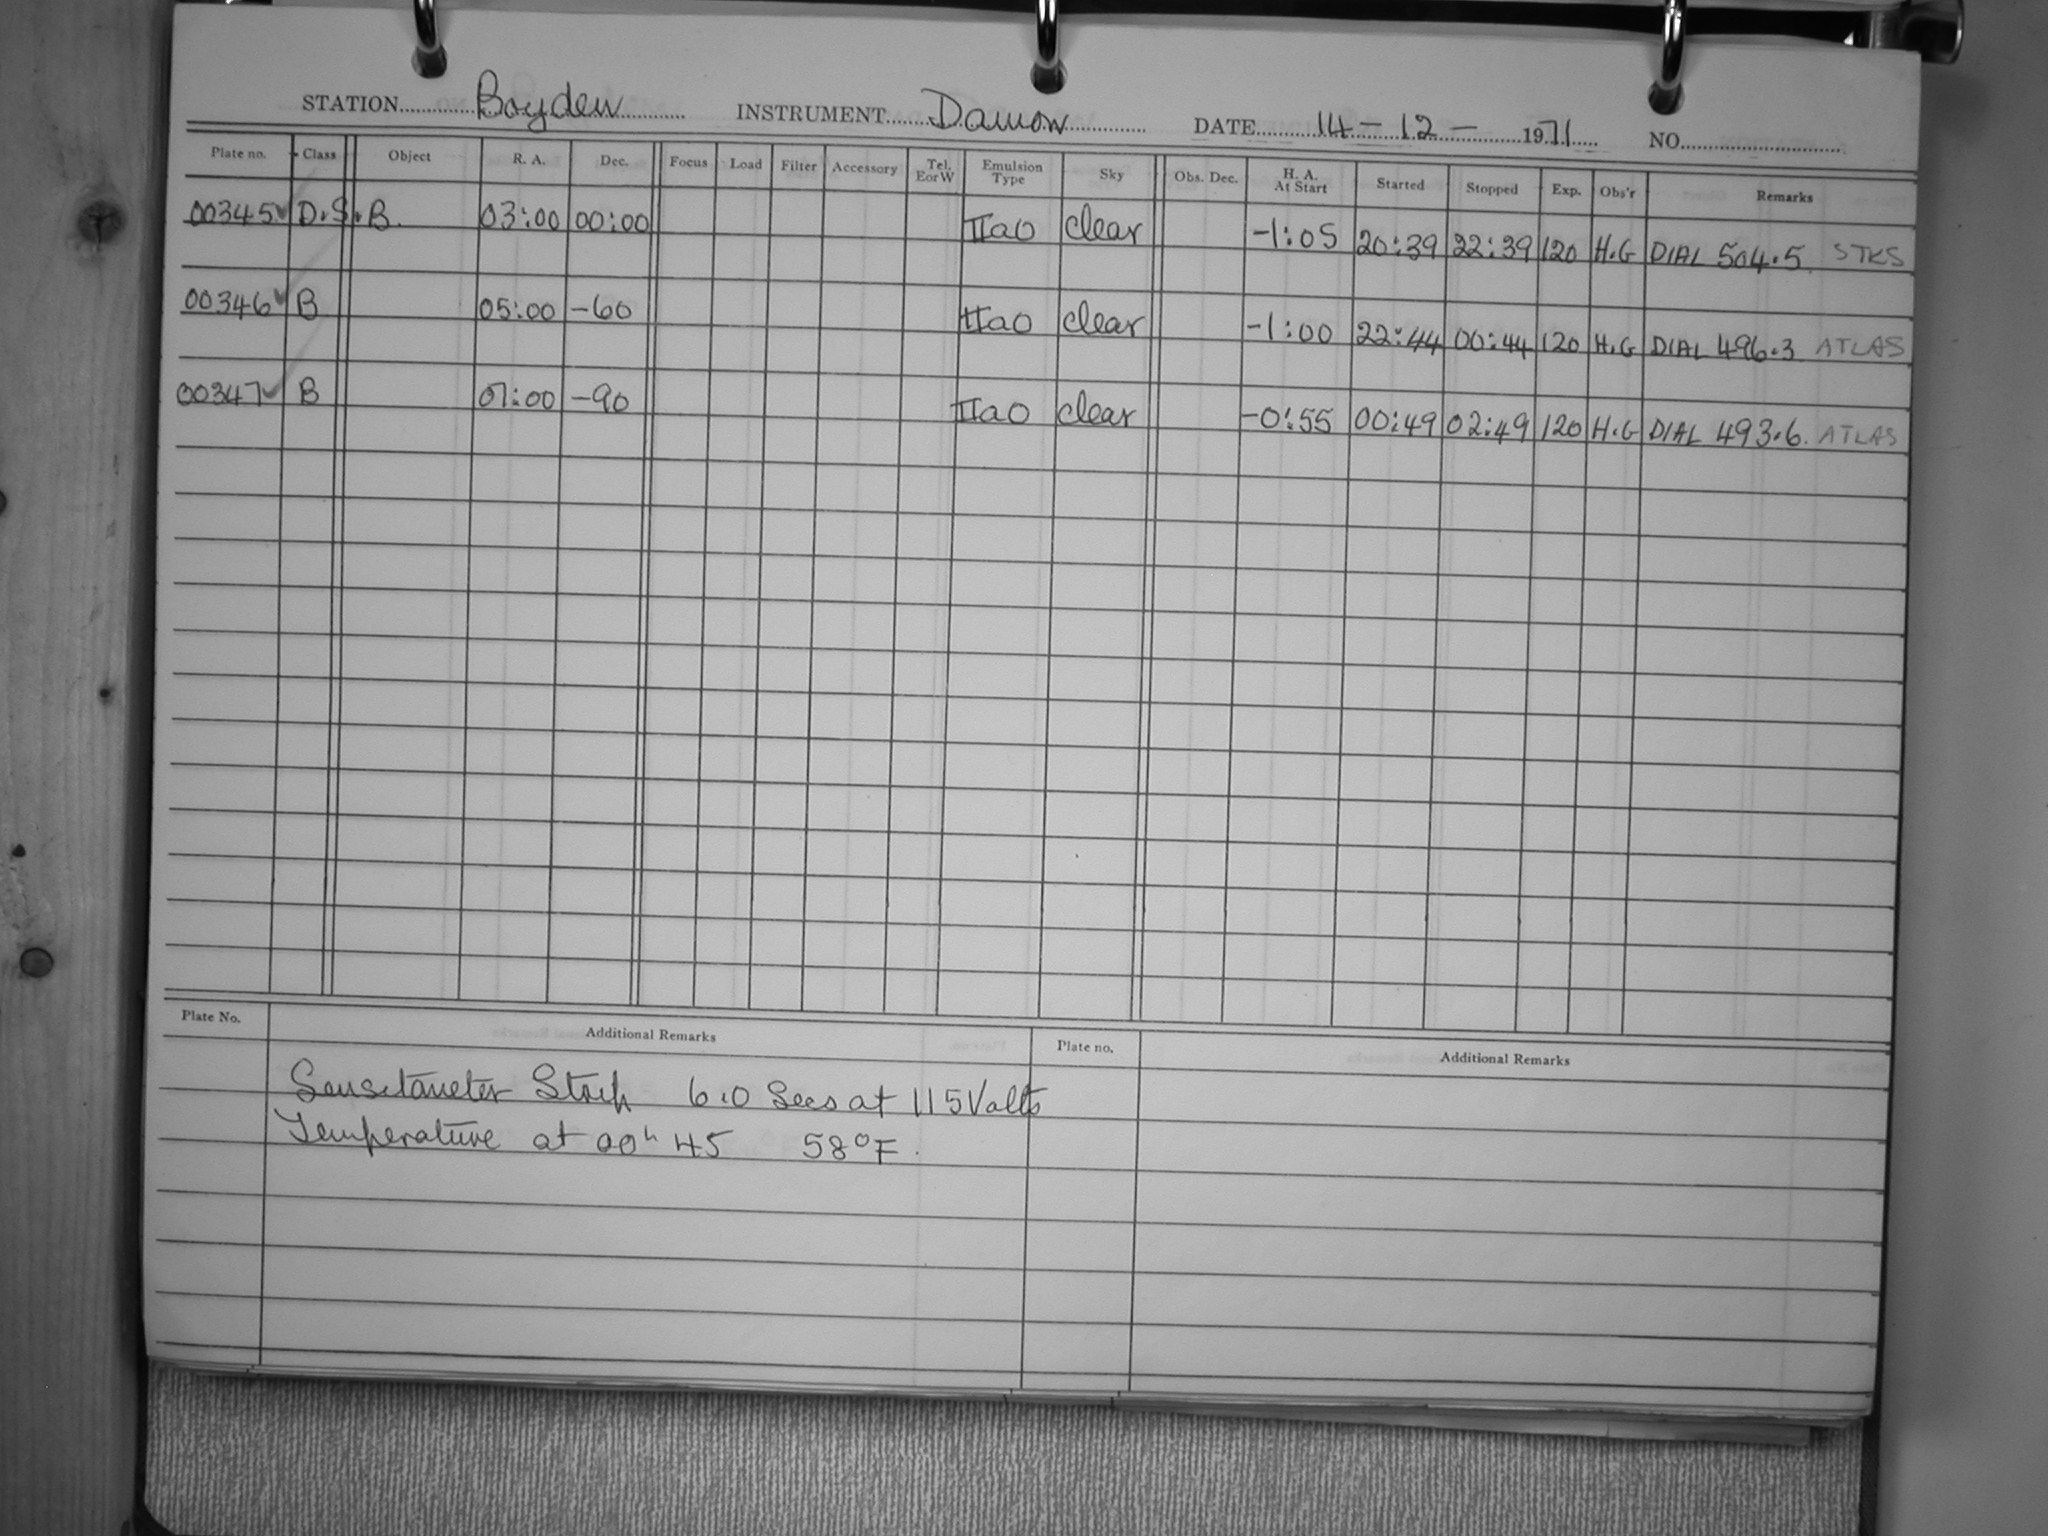 STATION Boyden INSTRUMENT Damon DATE 14-12-1971 NO.
Plate no. Class Object R. A. Dec. Focus Load Filter Accessory Tel. E or W Emulsion Type Sky Obs. Dec. H. A. At Start Started Stopped Exp. Obs'r Remarks
00345 ✓ D.S.B. 03:00 00:00 IIaO clear -1:05 20:39 22:39 120 H.G DIAL 504.5 STKS
00346 ✓ B 05:00 -60 IIaO clear -1:00 22:44 00:44 120 H.G DIAL 496.3 ATLAS
00347 ✓ B 07:00 -90 IIaO clear -0:55 00:49 02:49 120 H.G DIAL 493.6. ATLAS
Plate No. Additional Remarks Plate no. Additional Remarks
Sensitometer Strip 6.0 Secs at 115 Volts
Temperature at 00h 45 58°F.